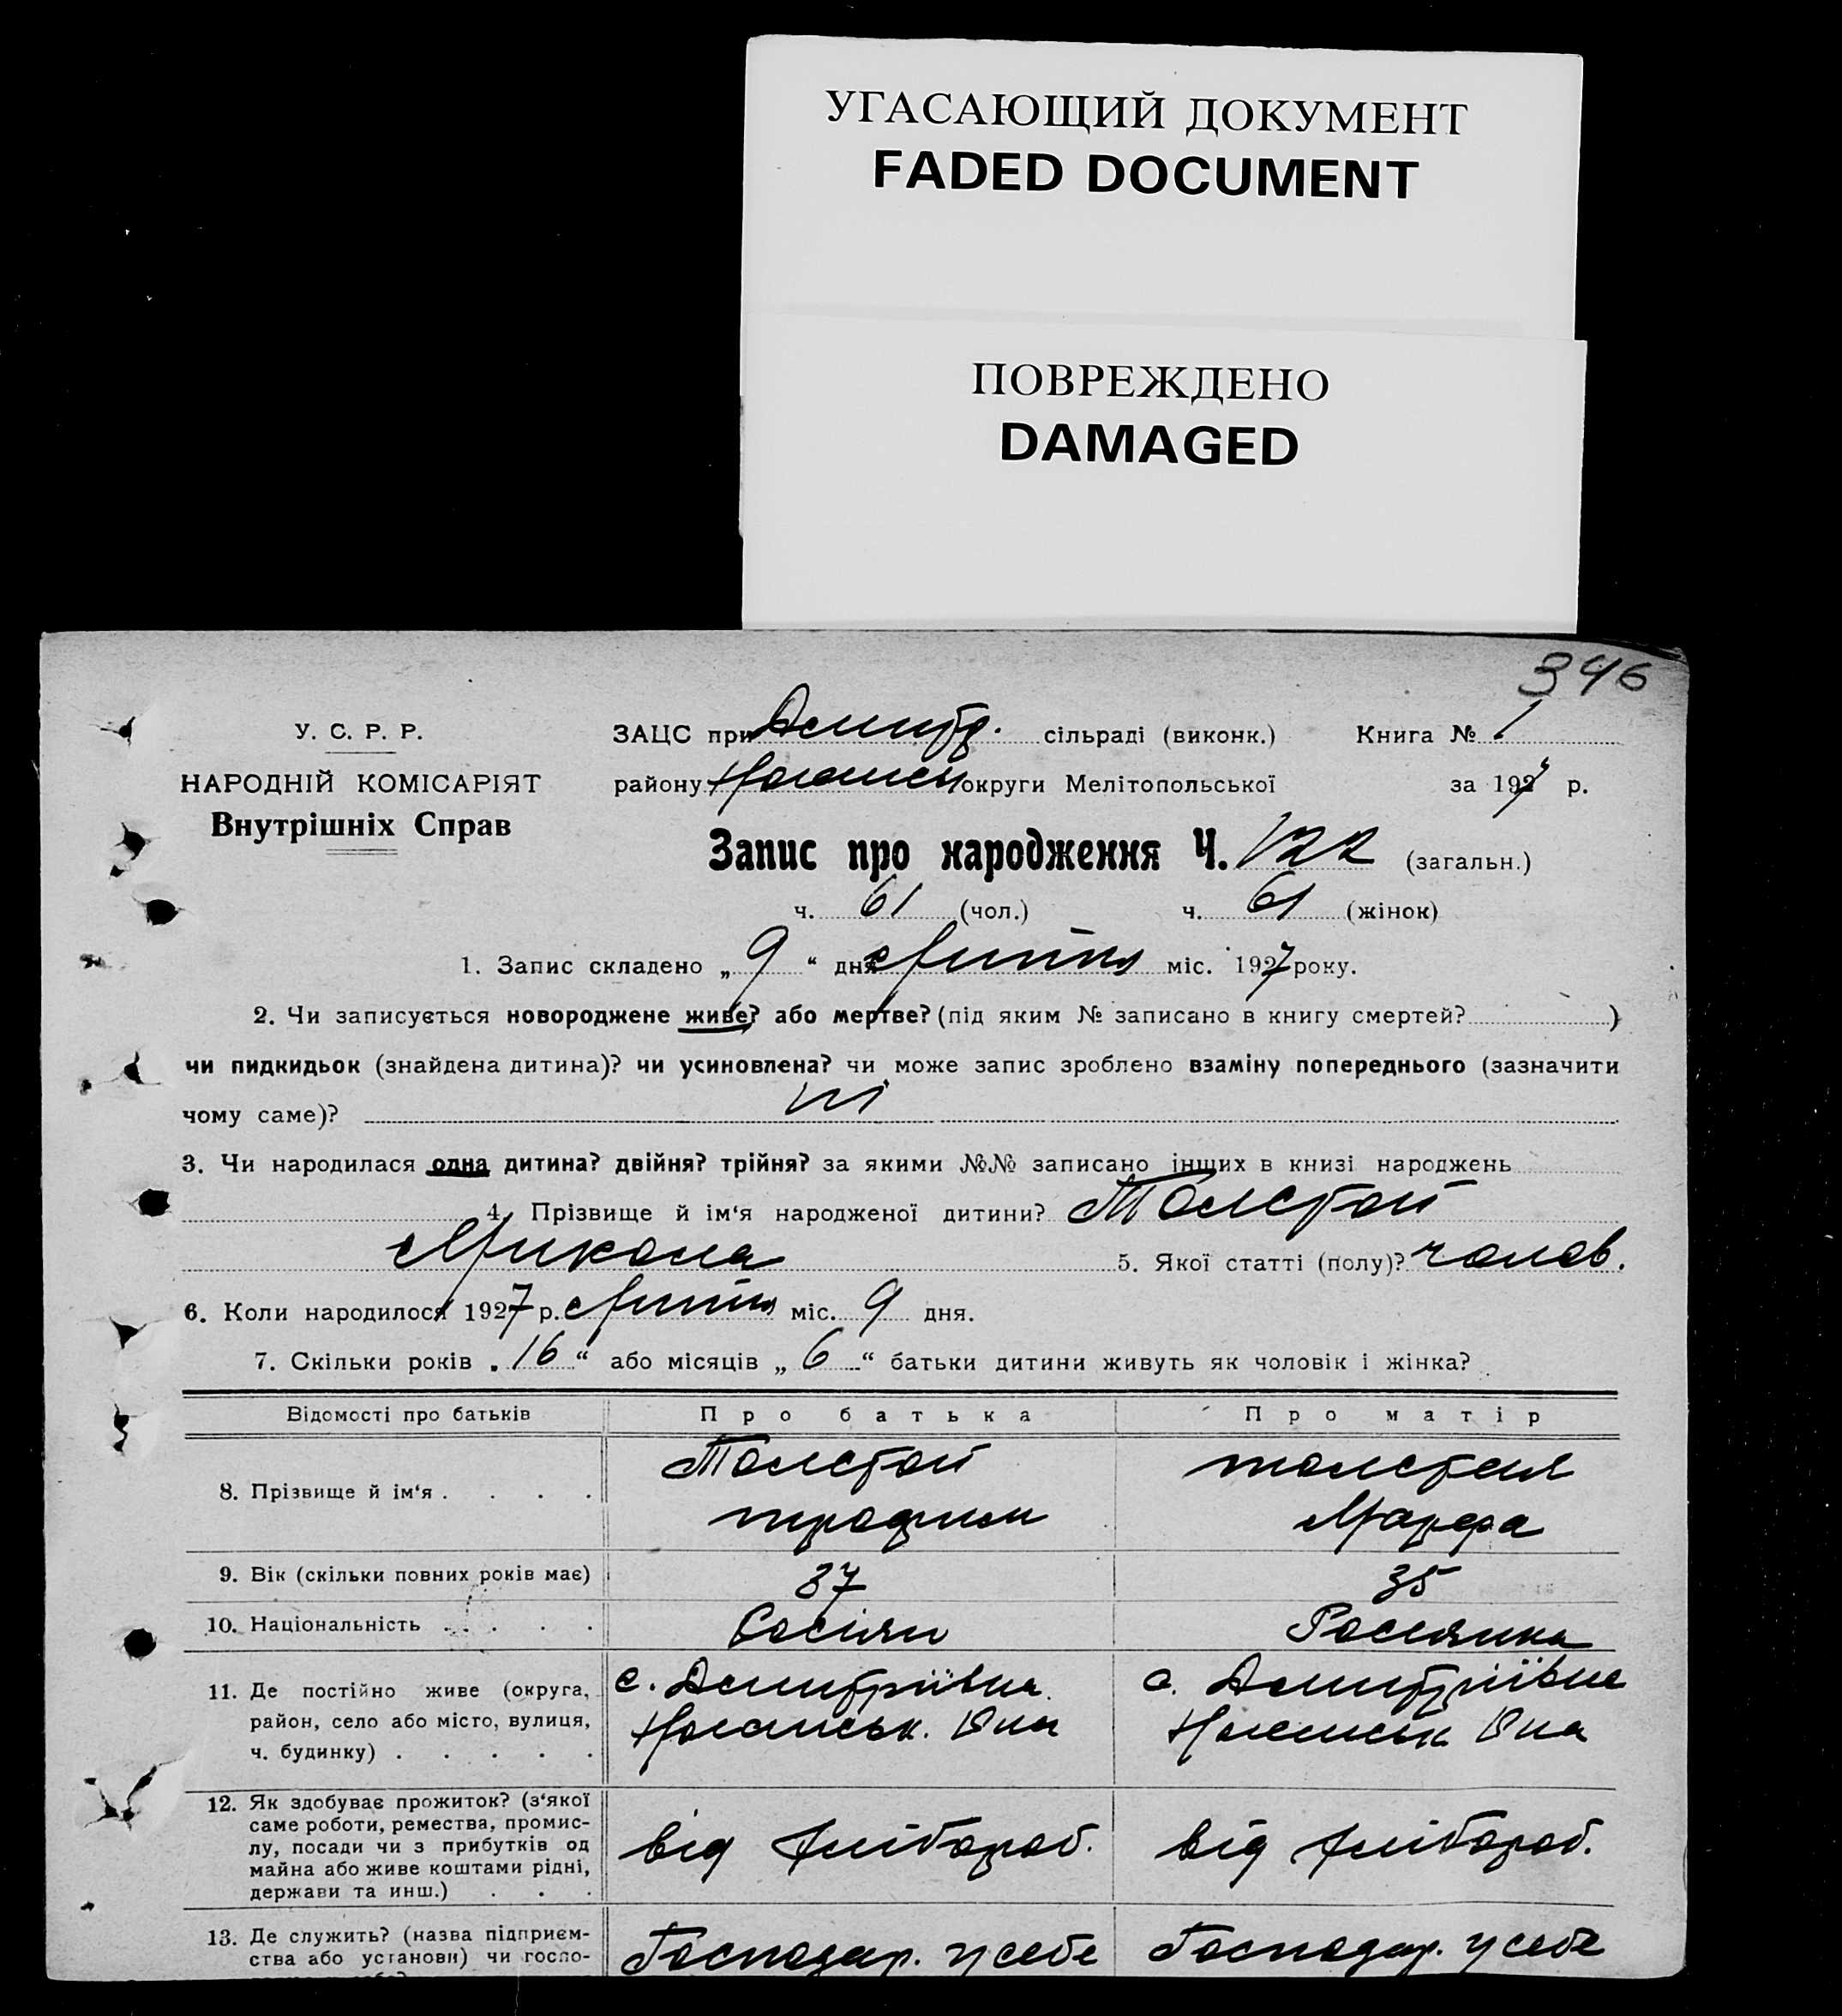 УГАСАЮЩИЙ ДОКУМЕНТ
FADED DOCUMENT
ПОВРЕЖДЕНО
DAMAGED
346
У. С. Р. Р.
НАРОДНІЙ КОМІСАРІЯТ
Внутрішніх Справ
ЗАЦС при Дмитр. сільраді (виконк.) Книга № 1
району Ногаиськ округи Мелітопольської за 1927 р.
Запис про народження Ч. 122 (загальн.)
ч. 61 (чол.) ч. 61 (жінок)
1. Запис складено „ 9 “ дня Липня міс. 1927 року.
2. Чи записується новороджене живе? або мертве? (під яким № записано в книгу смертей? )
чи пидкидьок (знайдена дитина)? чи усиновлена? чи може запис зроблено взаміну попереднього (зазначити
чому саме)? ні
3. Чи народилася одна дитина? двійня? трійня? за якими №№ записано інших в книзі народжень
4. Прізвище й ім‘я народженої дитини? Толстой
Микола 5. Якої статті (полу)? чолов.
6. Коли народилося 1927 р. Липня міс. 9 дня.
7. Скільки років „ 16 “ або місяців „ 6 “ батьки дитини живуть як чоловік і жінка?
Відомості про батьків Про батька Про матір
8. Прізвище й ім‘я . . . . Толстой Толстая
Трофим Марфа
9. Вік (скільки повних років має) 37 35
10. Національність . . . . . Росіян Россиянка
11. Де постійно живе (округа, с. Дмитріївка с. Дмитріївка
район, село або місто, вулиця, Ногаиськ. Р-на Ногаиськ Р-на
ч. будинку) . . . . .
12. Як здобуває прожиток? (з‘якої
саме роботи, ремества, промис-
лу, посади чи з прибутків од від хлібороб. від хлібороб.
майна або живе коштами рідні,
держави та инш.) . . .
13. Де служить? (назва підприєм- Господар. у себе Господар. у себе
ства або установи) чи госпо-